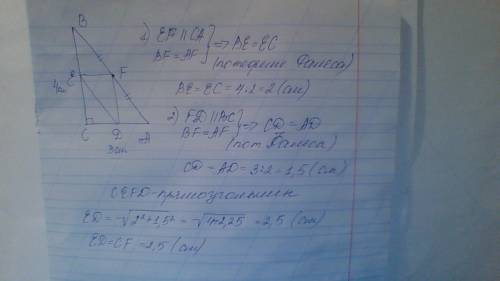 B
1) EF || CA
BF = AF } => BE = EC
(по теореме Фалеса)
E
F
4см
BE = EC = 4:2 = 2 (см)
C
D
A
3см
2) FD || BC
BF = AF } => CD = AD
(по т. Фалеса)
CD = AD = 3:2 = 1,5 (см)
CEFD - прямоугольник
ED = √2²+1,5² = √4+2,25 = 2,5 (см)
ED = CF = 2,5 (см)